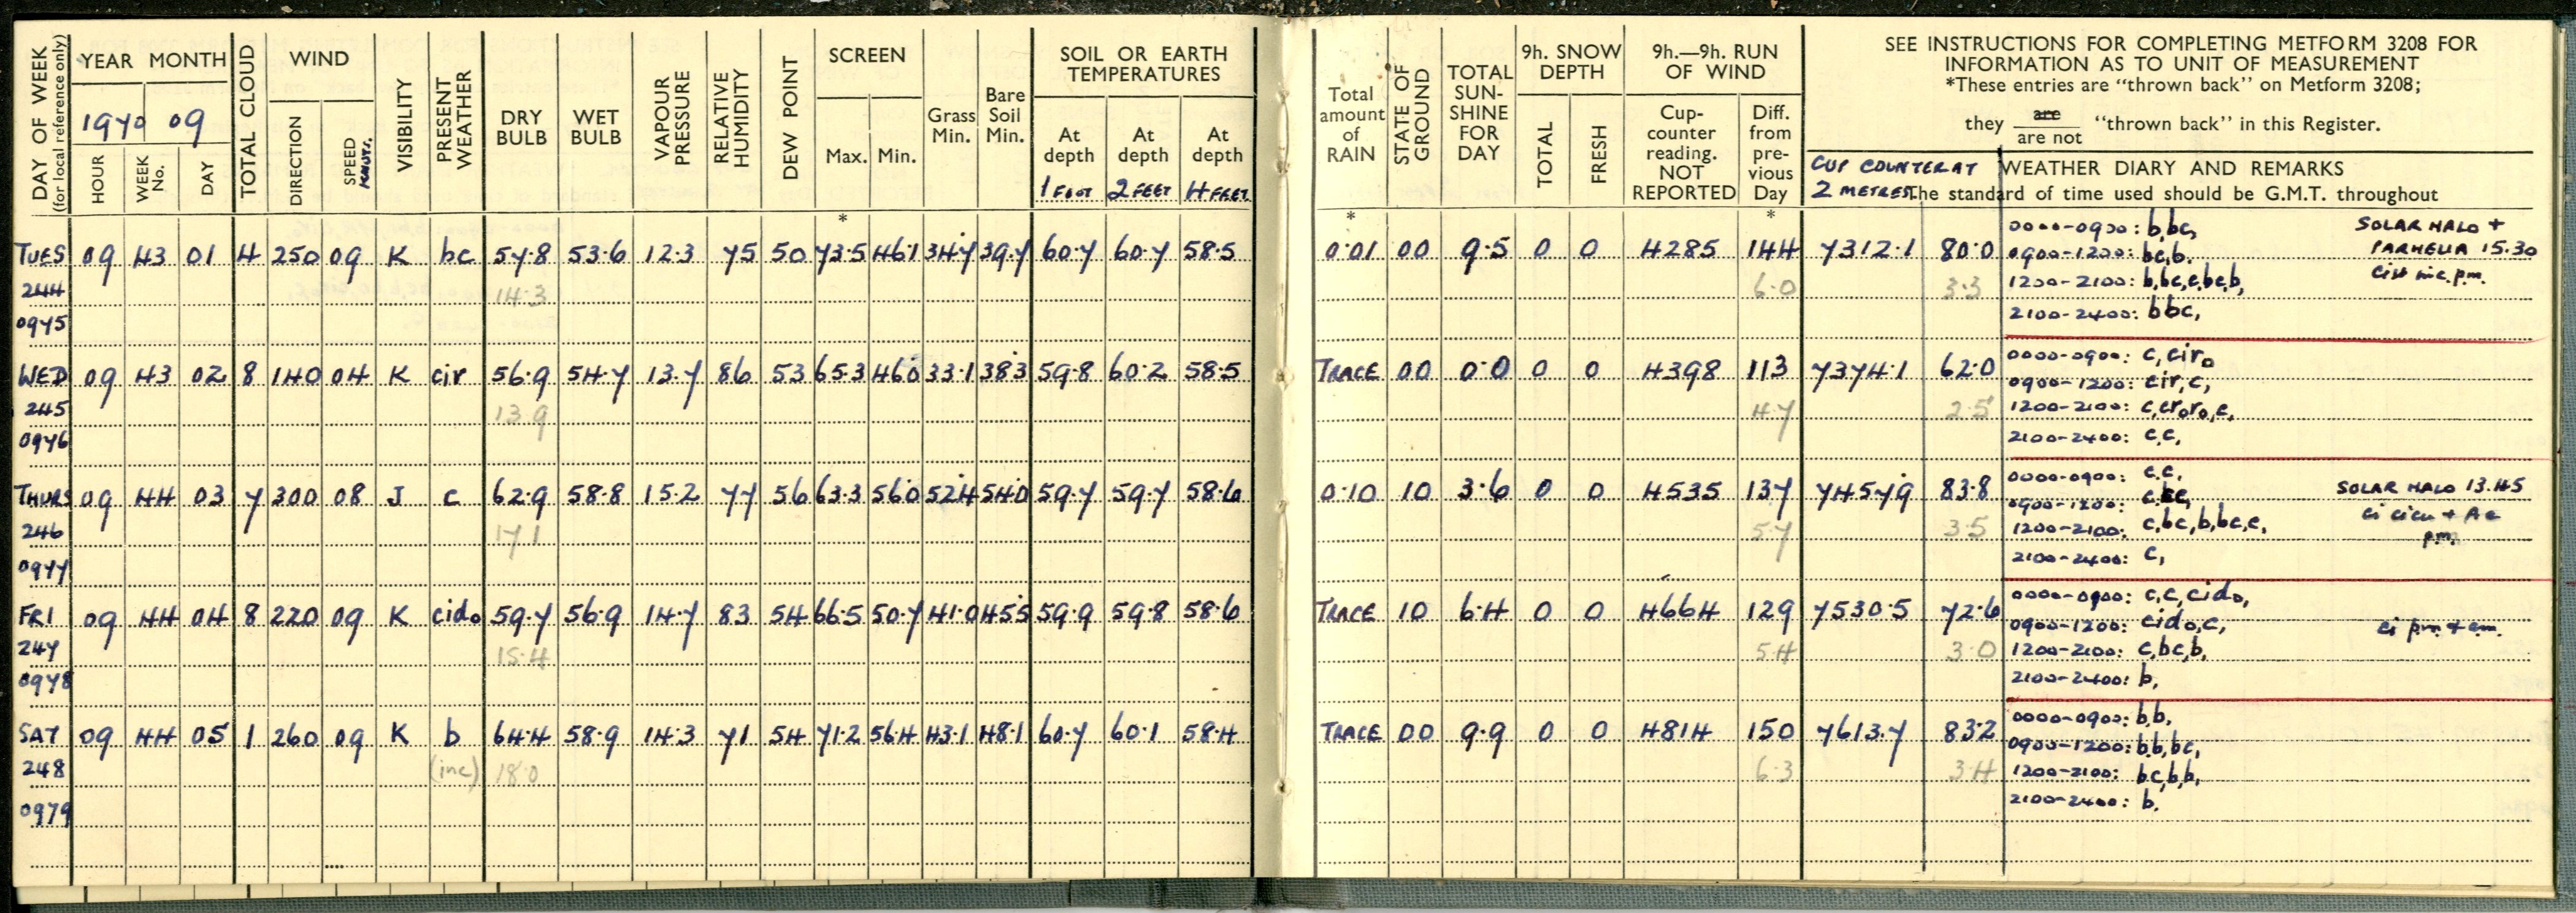 DAY OF WEEK (for local reference only)
YEAR MONTH
1970 09
HOUR WEEK No. DAY
TOTAL CLOUD
WIND
DIRECTION SPEED KNOTS.
VISIBILITY
PRESENT WEATHER
DRY BULB
WET BULB
VAPOUR PRESSURE
RELATIVE HUMIDITY
DEW POINT
SCREEN
Max. Min.
Grass Min.
Bare Soil Min.
SOIL OR EARTH TEMPERATURES
At depth 1 FOOT
At depth 2 FEET
At depth 4 FEET
Total amount of RAIN
STATE OF GROUND
TOTAL SUN-SHINE FOR DAY
9h. SNOW DEPTH
TOTAL FRESH
9h.—9h. RUN OF WIND
Cup-counter reading. NOT REPORTED
Diff. from pre-vious Day
SEE INSTRUCTIONS FOR COMPLETING METFORM 3208 FOR
INFORMATION AS TO UNIT OF MEASUREMENT
*These entries are "thrown back" on Metform 3208;
they are / are not "thrown back" in this Register.
CUP COUNTER AT 2 METRES
WEATHER DIARY AND REMARKS
The standard of time used should be G.M.T. throughout
* * *
TUES 09 43 01 4 250 09 K bc 57.8 53.6 12.3 75 50 73.5 46.1 34.7 39.7 60.7 60.7 58.5 0.01 00 9.5 0 0 4285 144 7312.1 80.0
244 14.3 6.0 3.3
0975
0000-0900: b,bc,
0900-1200: bc,b,
1200-2100: b,bc,c,bc,b,
2100-2400: bbc,
SOLAR HALO +
PARHELIA 15.30
WED 09 43 02 8 140 04 K cir 56.9 54.7 13.7 86 53 65.3 46.0 33.1 38.3 59.8 60.2 58.5 TRACE 00 0.0 0 0 4398 113 7374.1 62.0
245 13.9 4.7 2.5
0976
0000-0900: c, ciro
0900-1200: cir, c,
1200-2100: c,croro,c,
2100-2400: c,c,
THURS 09 44 03 7 300 08 J c 62.9 58.8 15.2 77 56 63.3 56.0 52.4 54.0 59.7 59.7 58.6 0.10 10 3.6 0 0 4535 137 7457.9 83.8
246 17.1 5.7 3.5
0977
0000-0900: c,c,
0900-1200:
1200-2100: c,bc,b,bc,c,
2100-2400: c,
SOLAR HALO 13.45
ci cicu + Ac
p.m.
FRI 09 44 04 8 220 09 K cido 59.7 56.9 14.7 83 54 66.5 50.7 41.0 45.5 59.9 59.8 58.6 TRACE 10 6.4 0 0 4664 129 7530.5 72.6
247 15.4 5.4 3.0
0978
0000-0900: c,c,cido,
0900-1200: cido,c,
1200-2100: c,bc,b,
2100-2400: b,
ci pm + em.
SAT 09 44 05 1 260 09 K b 64.4 58.9 14.3 71 54 71.2 56.4 43.1 48.1 60.7 60.1 58.4 TRACE 00 9.9 0 0 4814 150 7613.7 83.2
248 (inc) 18.0 6.3 3.4
0979
0000-0900: b,b,
0900-1200: b,b,bc,
1200-2100: bc,b,b,
2100-2400: b,